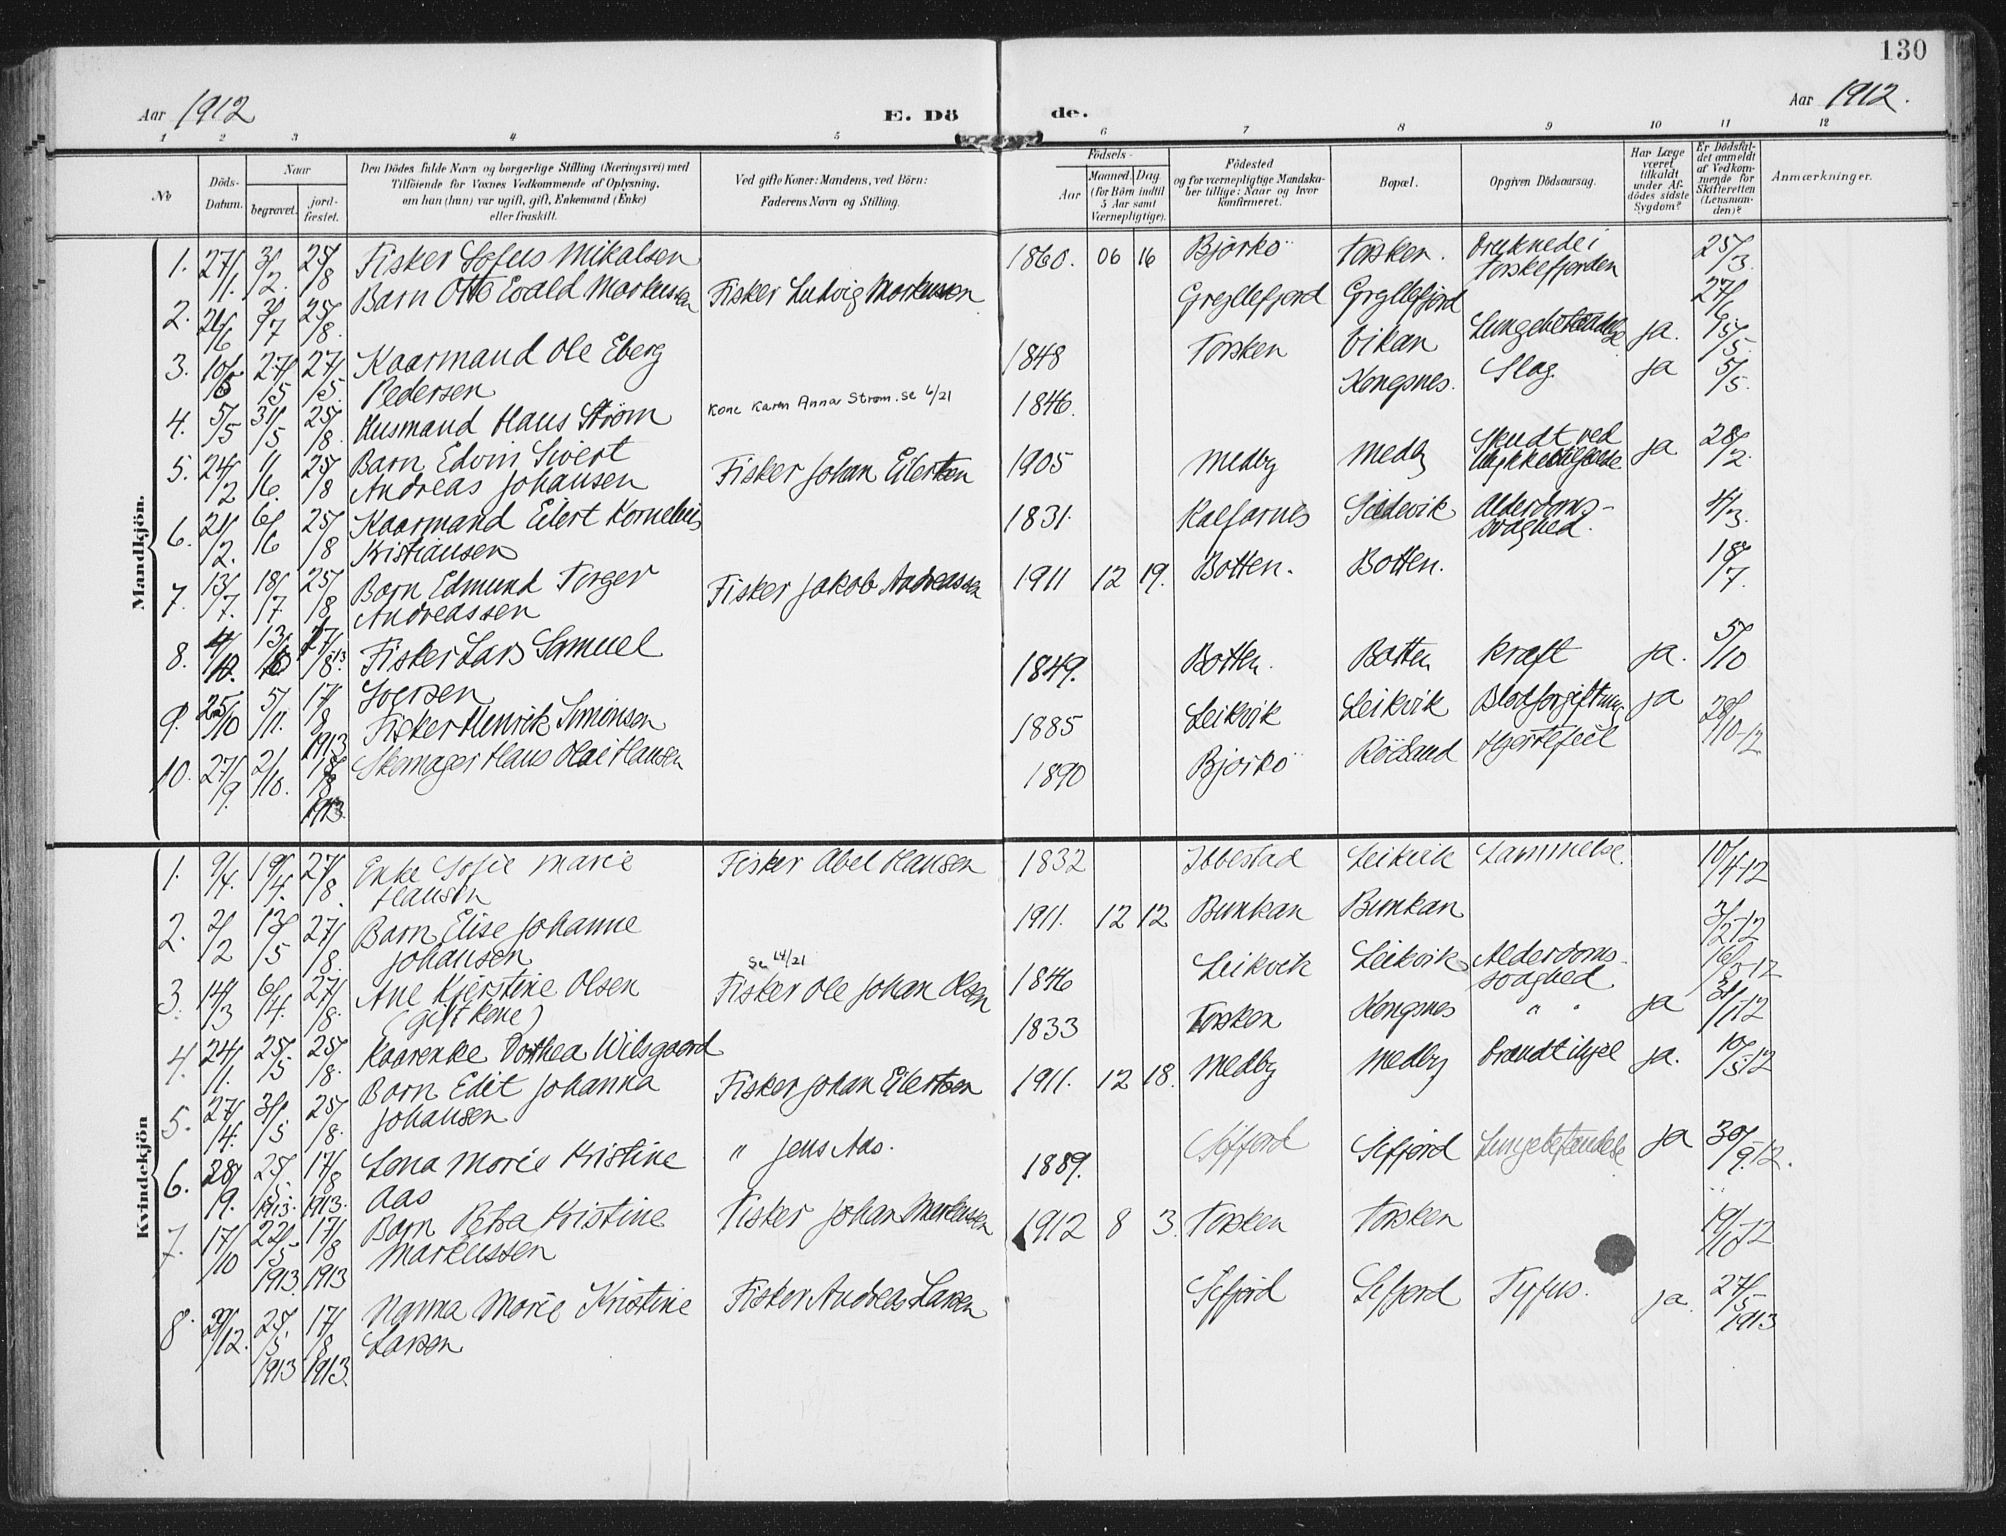 130
Aar 1912
E. Dö de.
Aar 1912.
1 2 3 4 5 6 7 8 9 10 11 12
No
Döds-Datum.
Naar
begravet.
jord-fæstet.
Den Dödes fulde Navn og borgerlige Stilling (Næringsvei) med
Tilföiende for Voxnes Vedkommende af Oplysning,
om han (hun) var ugift, gift, Enkemand (Enke)
eller fraskilt.
Ved gifte Koner: Mandens, ved Börn:
Faderens Navn og Stilling.
Födsels-
Aar
Maaned. Dag
(for Börn indtil
5 Aar samt
Værnepligtige).
Födested
og for værnepligtige Mandska-
ber tillige: Naar og hvor
konfirmeret.
Bopæl.
Opgiven Dödsaarsag.
Har Læge
været
tilkaldt
under Af-
dödes sidste
Sygdom?
Er Dödsfal-
det anmeldt
af Vedkom-
mende for
Skifteretten
(Lensman-
den)?
Anmærkninger.
Mandkjön.
1. 27/1. 3/2. 25/8 Fisker Sofus Mikalsen 1860. 06 16 Bjorkö Torsken. Druknede i Torskefjorden 25/3.
2. 26/6 7/7 25/8. Barn Otto Evald Markussen Fisker Ludvig Markussen Gryllefjord Gryllefjord 27/6
3. 10/5 27/5 27/5. Kaarmand Ole Eberg Pedersen 1848 Torsken Vikan Lungebetændelse ja. 15/5.
4. 5/5 31/5 25/8. Husmand Hans Strøm Kone Karen Anna Strøm. se 6/21 1846. Kongsnes. Slag. ja 5/5.
5. 24/2 1/6. 25/8 Barn Edvin Sivert Andreas Johansen Fisker Johan Eilertsen 1905 Medby Medby Skudt ved Ulykkestilfælde ja 28/2.
6. 21/2. 6/6 25/8 Kaarmand Eilert Kornelius Kristiansen 1831. Kalfarnes Sildevik Alderdoms-svaghed. 4/3.
7. 13/7. 18/7. 25/8 Barn Edmund Torger Andreassen Fisker Jakob Andreassen 1911 12 19. Botten. Botten. 18/7.
8. 4/10. 13/10 17/8 13. Fisker Lars Samuel Iversen 1849. Botten. Botten Kræft ja. 5/10
9. 25/10 5/11. 17/8 1913 Fisker Henrik Simonsen 1885 Leikvik Leikvik Blodforgiftning ja 28/10-12
10. 27/9. 2/10. 18/8 1913. Skomager Hans Olai Hansen 1890 Bjorkö Rödsand Hjertefeil
Kvindekjön
1. 9/4. 19/4. 27/8. Enke Sofie Marie Hanson Fisker Abel Hansen 1832 Ibbestad Leikvik Lammelse. 10/4-12
2. 2/2 13/5 27/8. Barn Elise Johanne Johansen 1911. 12 12 Bunkan Bunkan 3/2-12
3. 14/3 6/4. 27/8. Ane Kjerstine Olsen (gift kone) se 14/21 Fisker Ole Johan Olsen 1846 Leikvik Leikvik Alderdoms-svaghed 16/3-12
4. 24/1. 25/5 25/8. Kaarenke Dorthea Wilsgaard 1833 Torsken Kongsnes " " ja 31/1-12
5. 27/4. 31/5 25/8. Barn Edit Johanna Johansen Fisker Johan Eilertsen 1911. 12 18. Medby Medby Brændt ihjel ja. 10/5-12
6. 28/9. 25/5. 1913. 17/8 1913. Lona Marie Kristine Aas " Jens Aas. 1889. Sifjord Sifjord Lungebetændelse ja 30/9.12.
7. 17/10 22/5 1913 17/8 1913 Barn Petra Kristine Markussen Fisker Johan Markussen 1912 8 3. Torsken Torsken 19/10-12
8. 29/12. 25/5 1913 17/8 1913. Nanna Marie Kristine Larsen Fisker Andreas Larsen Sifjord Sifjord Tyfus. ja. 27/5-1913